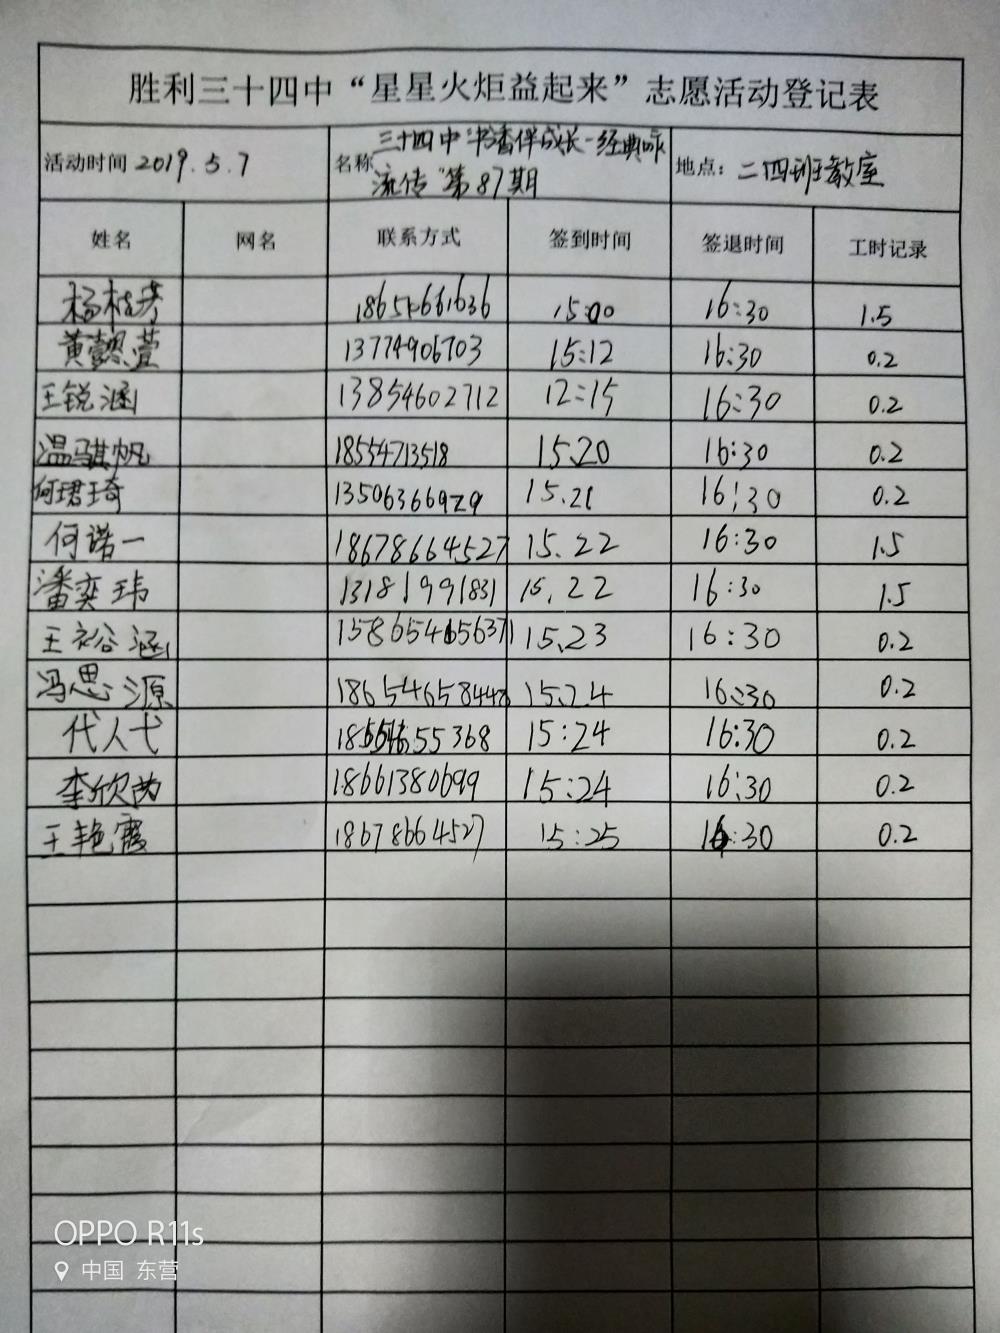 胜利三十四中“星星火炬益起来”志愿活动登记表
活动时间 2019.5.7 名称 三十四中“书香伴成长-经典咏 地点：二四班教室
流传”第87期
姓名 网名 联系方式 签到时间 签退时间 工时记录
杨桂芳 15:00 16:30 1.5
黄懿萱 13774906703 15:12 16:30 0.2
王锐涵 13854602712 12:15 16:30 0.2
温骐帆 18554713518 15.20 16:30 0.2
何珺琦 13506366929 15.21 16:30 0.2
何诺一 18678664527 15.22 16:30 1.5
潘奕玮 13181991831 15.22 16:30 1.5
王裕涵 15.23 16:30 0.2
冯思源 15.24 16:30 0.2
代人弋 15:24 16:30 0.2
李欣芮 18661380699 15:24 16:30 0.2
王艳霞 18678664527 15:25 16:30 0.2
OPPO R11s
中国 东营